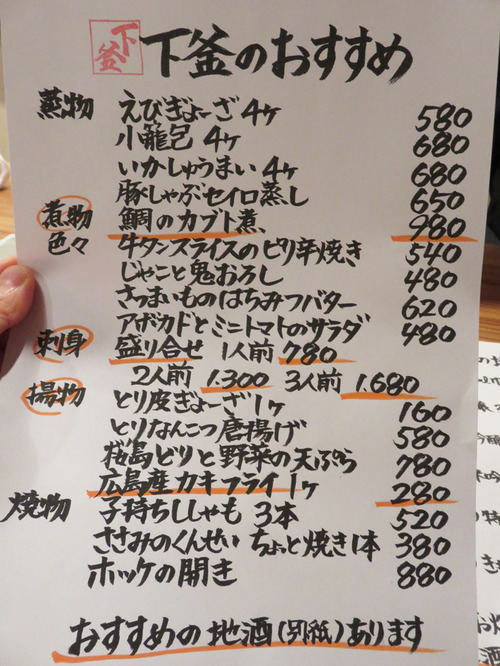 下釜 下釜のおすすめ
蒸物 えびぎょーざ4ヶ 580
小籠包 4ヶ 680
いかしゅうまい4ヶ 680
豚しゃぶセイロ蒸し 650
煮物 鯛のカブト煮 980
色々 牛タンスライスのピリ辛焼き 540
じゃこと鬼おろし 480
さつまいものはちみつバター 620
アボカドとミニトマトのサラダ 480
刺身 盛り合せ 1人前 780
2人前 1.300 3人前 1.680
揚物 とり皮ぎょーざ1ヶ 160
とりなんこつ唐揚げ 580
桜島どりと野菜の天ぷら 780
広島産カキフライ1ヶ 280
焼物 子持ちししゃも 3本 520
ささみのくんせい ちょっと焼き1本 380
ホッケの開き 880
おすすめの地酒(別紙)あります